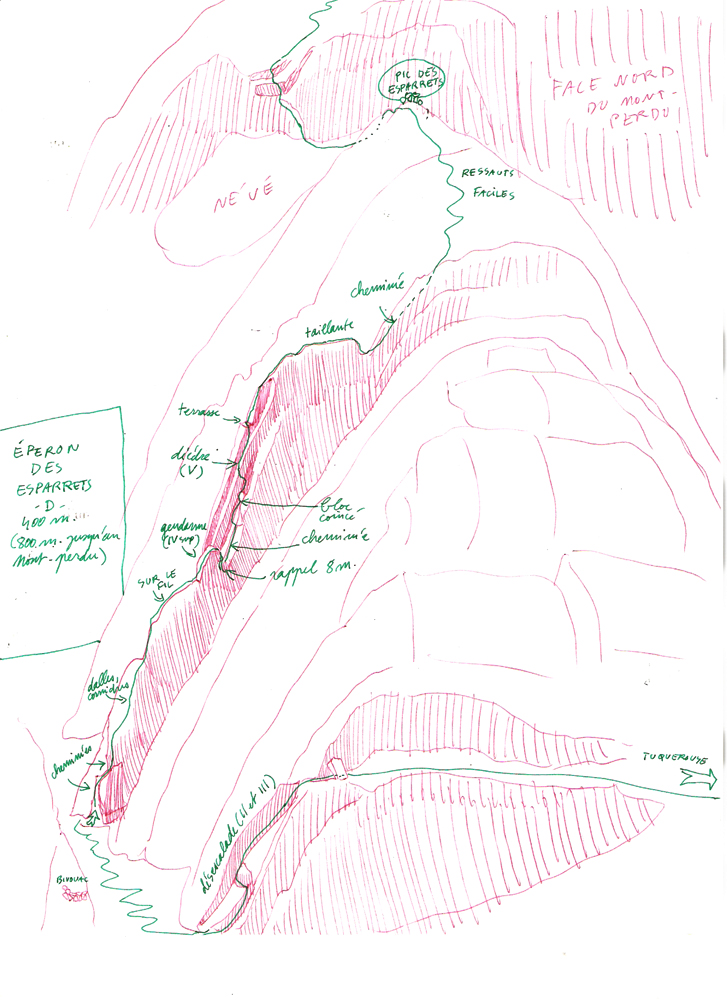 PIC DES
ESPARRETS
FACE NORD
DU MONT-
PERDU
NÉVÉ
RESSAUTS
FACILES
cheminée
taillante
terrasse
dièdre
(V)
bloc
coincé
gendarme
(IV sup)
cheminée
rappel 8 m.
SUR LE
FIL
ÉPERON
DES
ESPARRETS
- D -
400 m.
(800 m. jusqu'au
Mont-perdu)
dalles,
cheminées
TUQUEROUYE
désescalade (II et III)
BIVOUAC